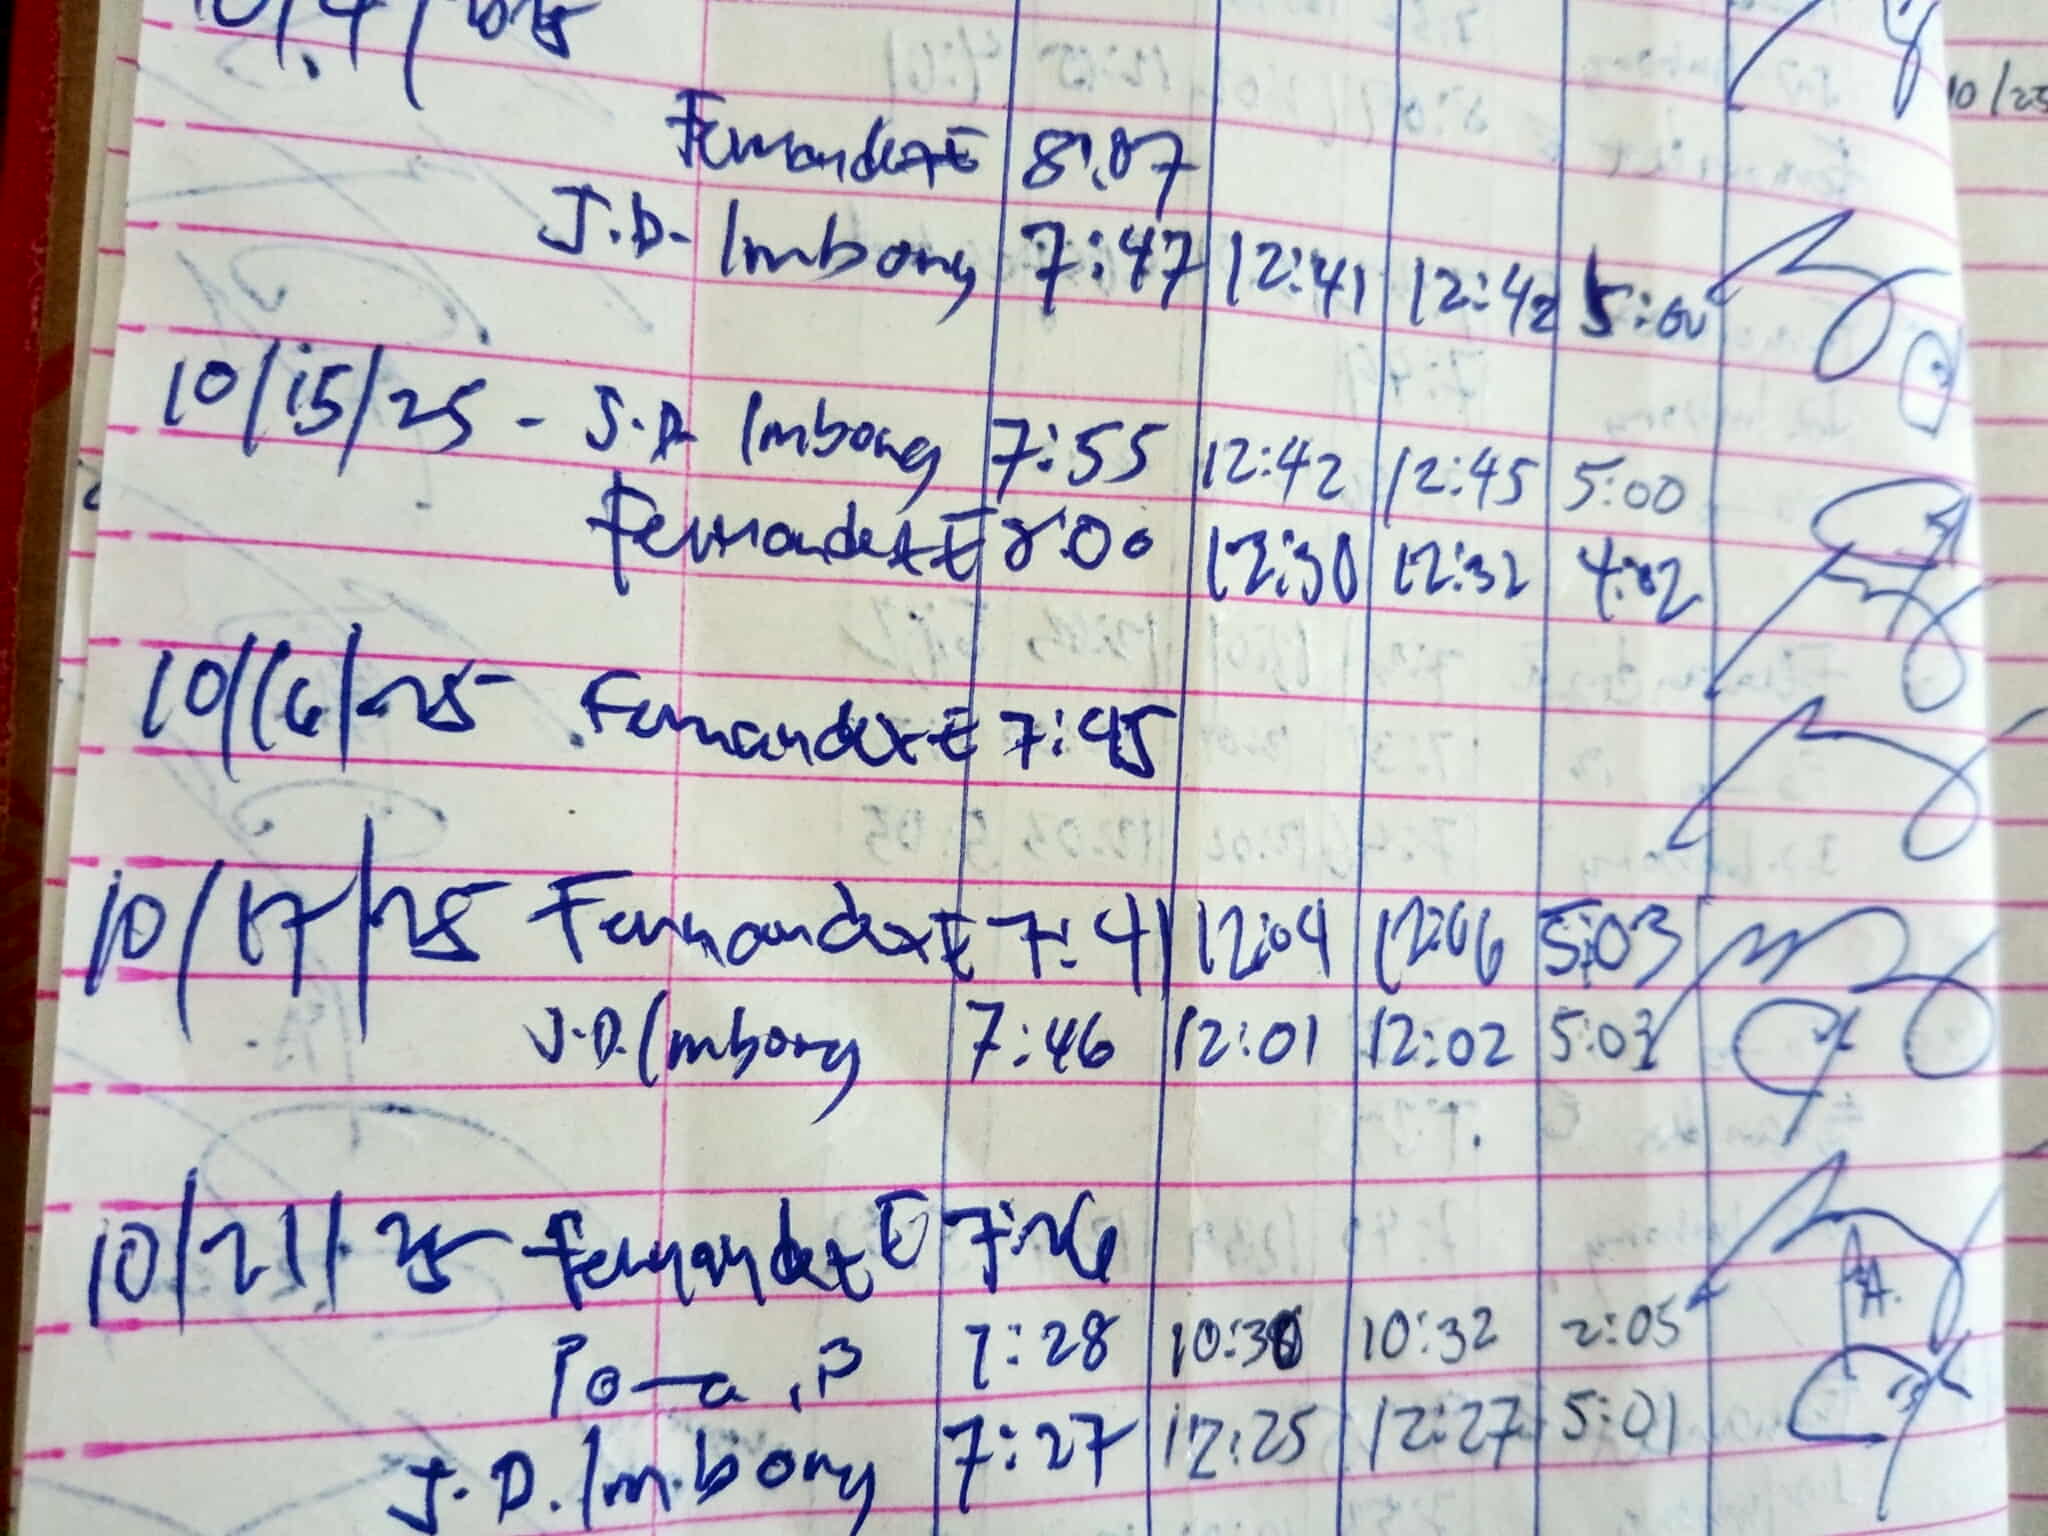 Fernandez E 8:07
J.D. Imbong 7:47 12:41 12:42 5:00
10/15/25 - J.D. Imbong 7:55 12:42 12:45 5:00
Fernandez E 8:00 12:30 12:32 4:02
10/16/25 Fernandez E 7:45
10/17/25 Fernandez E 7:41 12:04 12:06 5:03
J.D. Imbong 7:46 12:01 12:02 5:03
10/21/25 Fernandez E 7:26
Po-a, B 7:28 10:30 10:32 2:05
J.D. Imbong 7:27 12:25 12:27 5:01